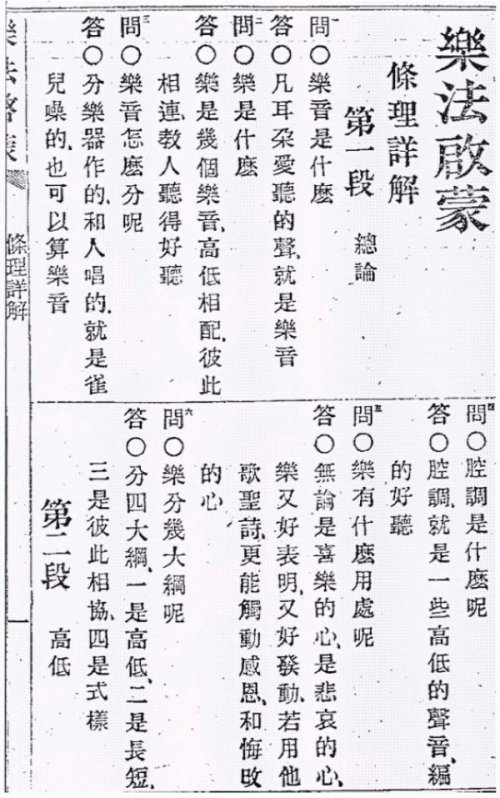 樂法啟蒙
條理詳解
第一段 總論
一 問〇樂音是什麽
答〇凡耳朶愛聽的聲、就是樂音
二 問〇樂是什麽
答〇樂是幾個樂音、高低相配、彼此
相連、教人聽得好聽
三 問〇樂音怎麽分呢
答〇分樂器作的、和人唱的、就是雀
兒噪的、也可以算樂音
樂法啟蒙 條理詳解 一
四 問〇腔調是什麽
答〇腔調、就是一些高低的聲音、編
的好聽
五 問〇樂有什麽用處呢
答〇無論是喜樂的心、是悲哀的心、
樂又好表明、又好發動、若用他
歌聖詩、更能觸動感恩、和悔改
的心
六 問〇樂分幾大綱呢
答〇分四大綱、一是高低、二是長短、
三是彼此相協、四是式樣
第二段 高低